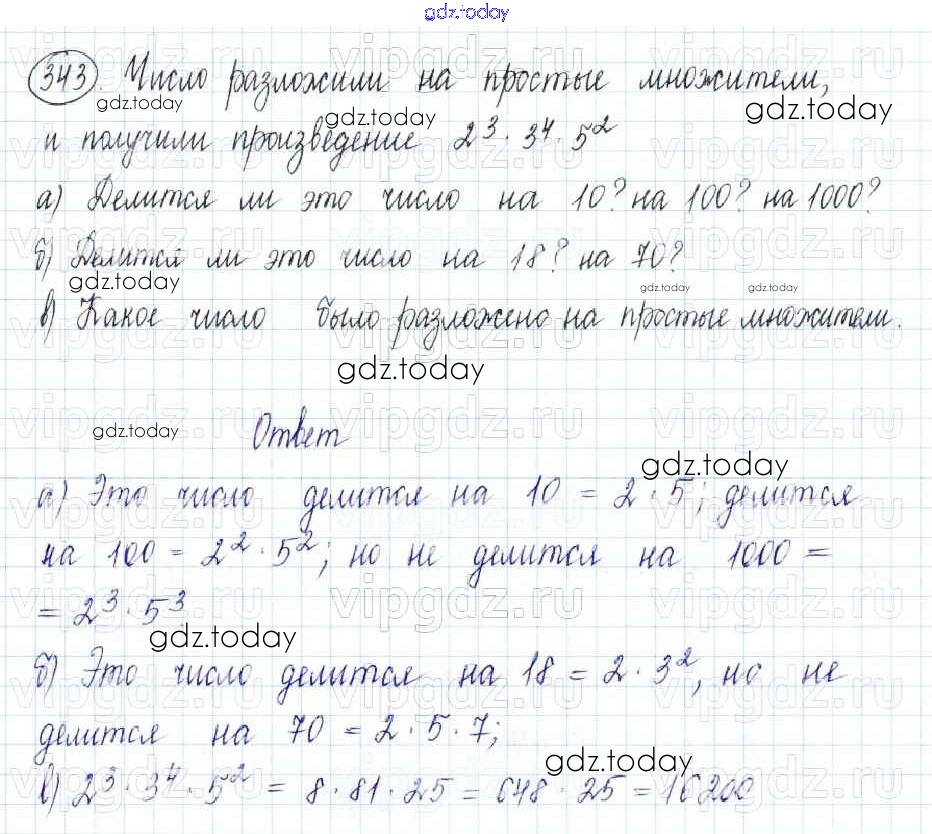 gdz.today
343. Число разложили на простые множители,
и получили произведение 2³ · 3⁴ · 5²
а) Делится ли это число на 10? на 100? на 1000?
б) Делится ли это число на 18? на 70?
в) Какое число было разложено на простые множители.
Ответ
а) Это число делится на 10 = 2 · 5; делится
на 100 = 2² · 5²; но не делится на 1000 =
= 2³ · 5³.
б) Это число делится на 18 = 2 · 3², но не
делится на 70 = 2 · 5 · 7;
в) 2³ · 3⁴ · 5² = 8 · 81 · 25 = 648 · 25 = 16200